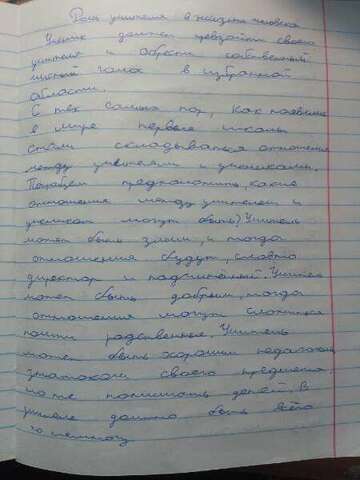 Роль учителя в жизни человека
Ученик должен превзойти своего
учителя и обрести собственный
чистый голос в избранной
области.
С тех самых пор, как появились
в мире первые школы
стали складываться отношения
между учителями и учениками.
Попробуем предположить, какие
отношения между учителем и
учеником могут быть? Учитель
может быть злым, и тогда
отношения будут, словно
директор и подчинённый. Учитель
может быть добрым, тогда
отношения могут сложиться
почти родственные. Учитель
может быть хорошим педагогом
знатоком своего предмета,
но не понимать детей. В
учителе должно быть всего
по немногу